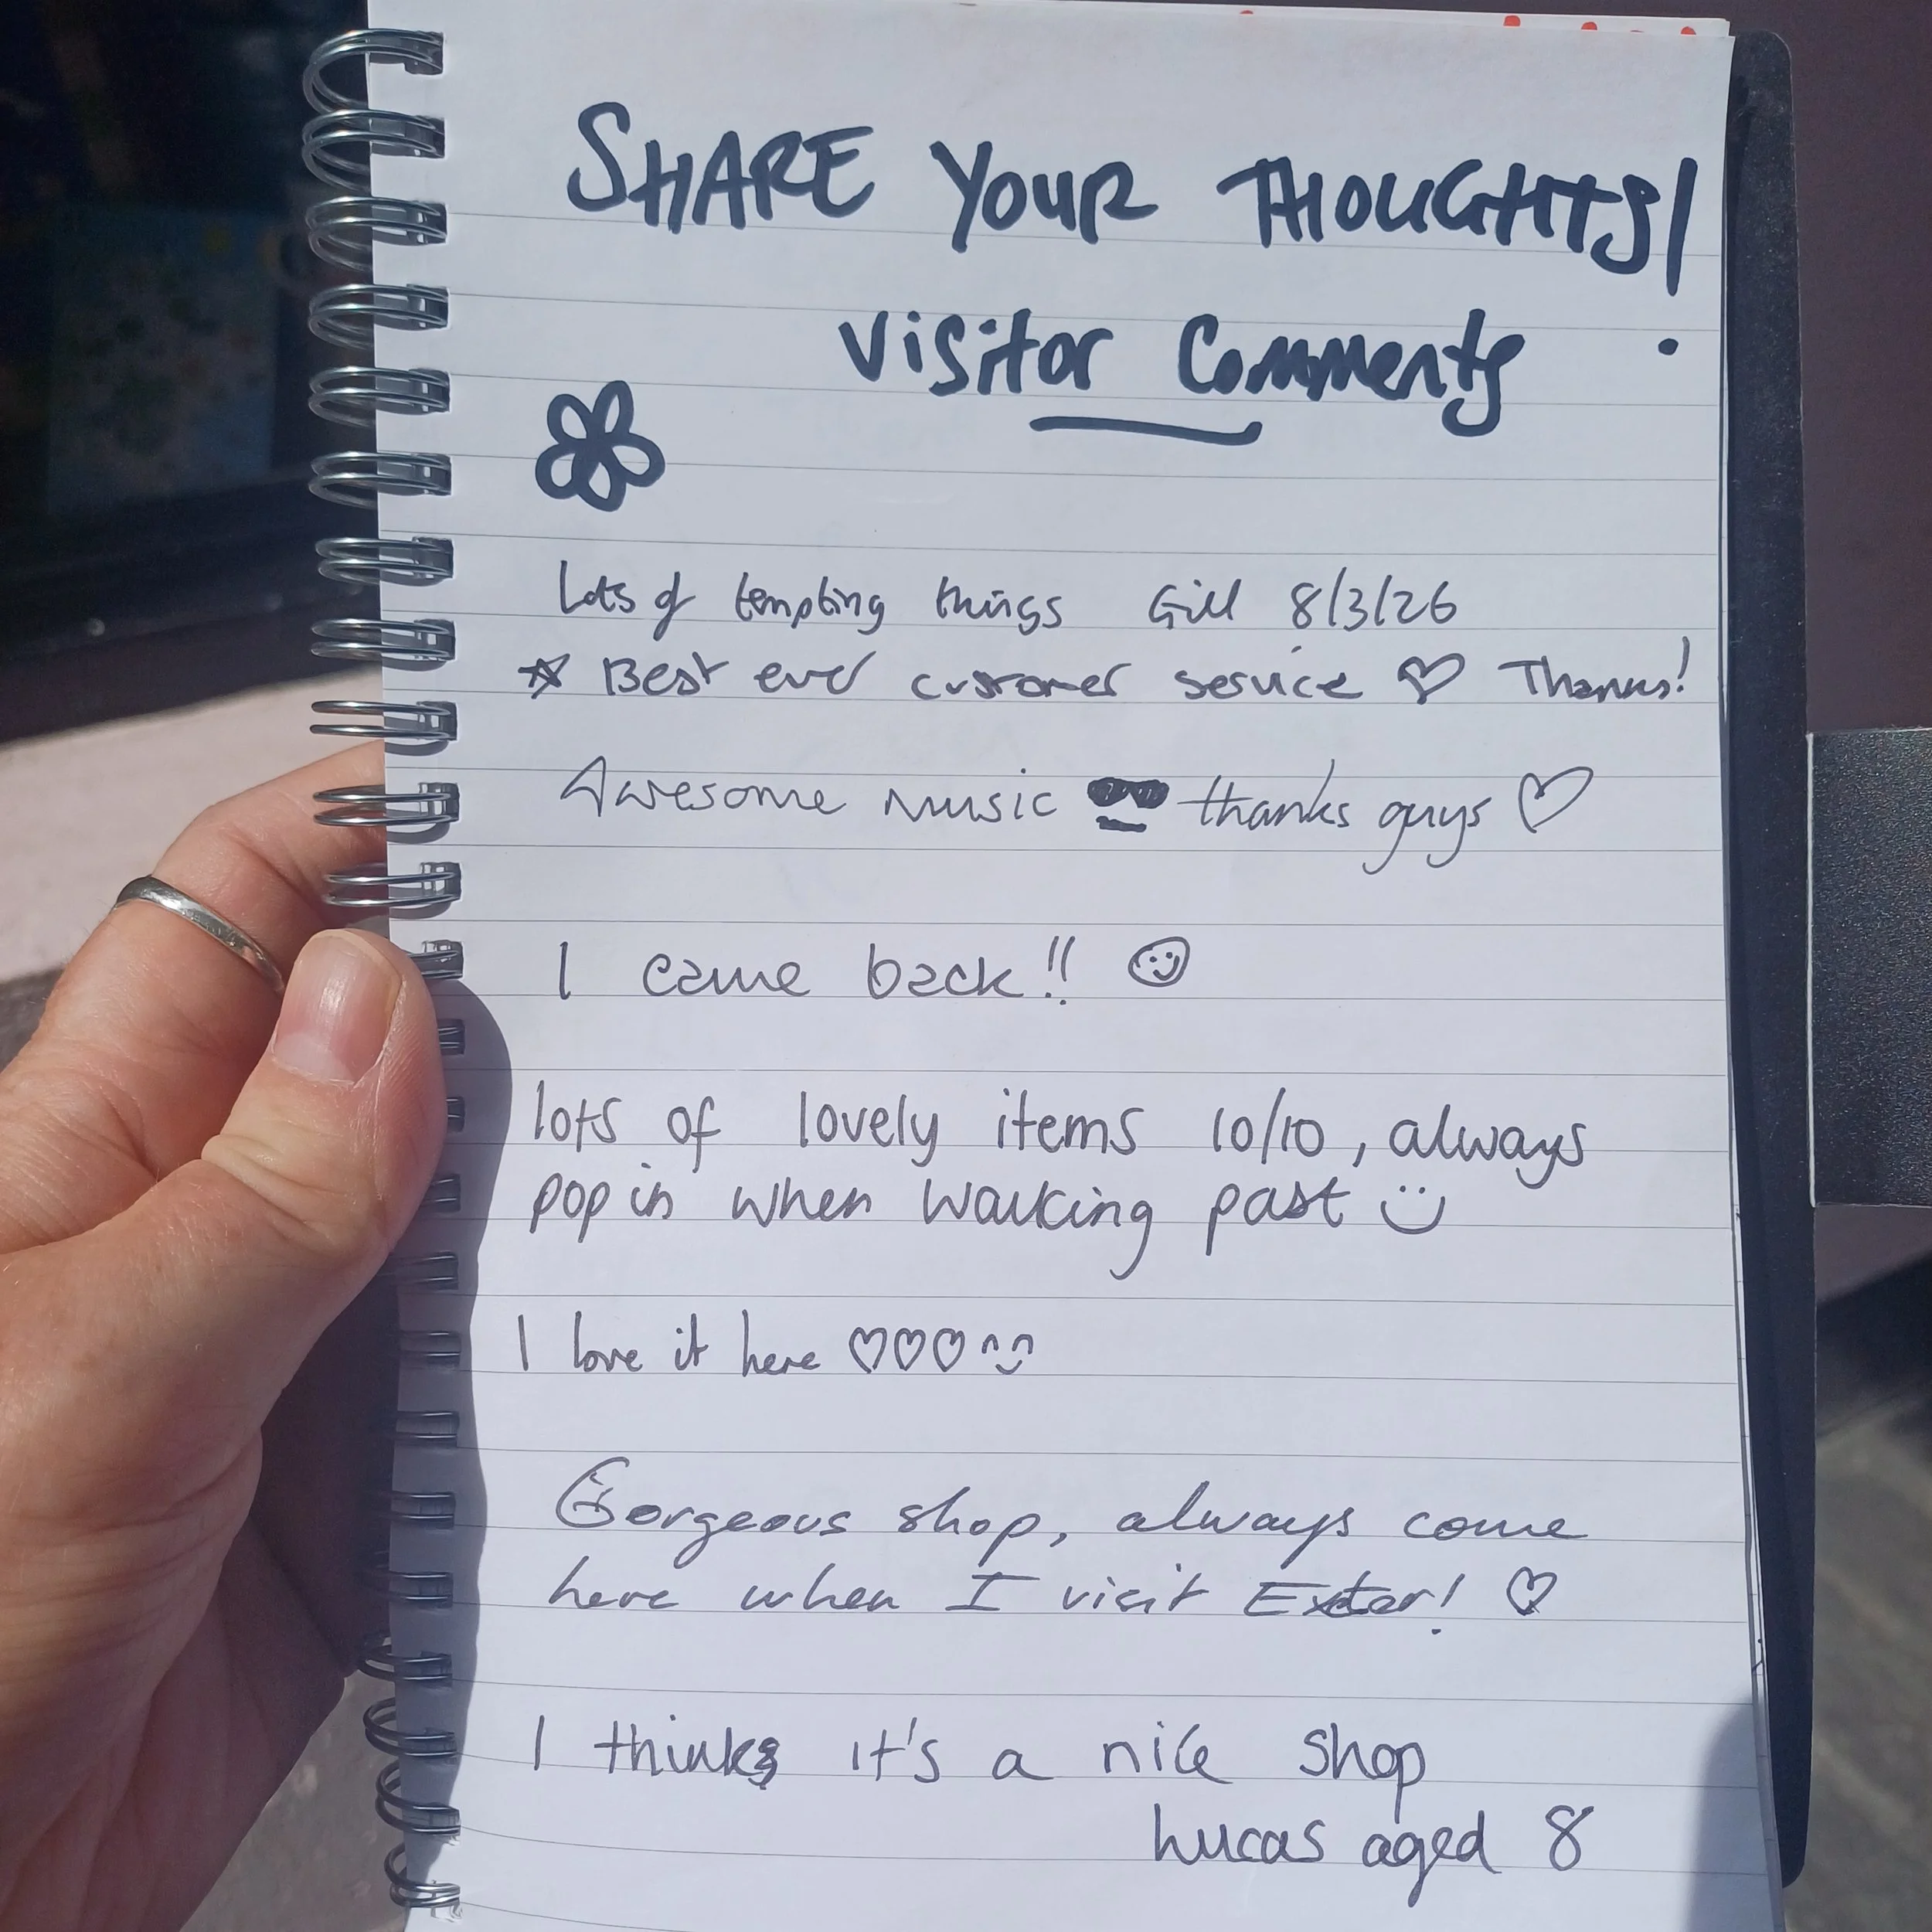 SHARE YOUR THOUGHTS!
Visitor Comments
Lots of tempting things Gill 8/3/26
☆ Best ever customer service ♡ Thanks!
Awesome Music 😎 thanks guys ♡
I came back!! ☺
lots of lovely items 10/10, always
pop in when walking past ☺
I love it here ♡♡♡ ^‿^
Gorgeous shop, always come
here when I visit Exeter! ♡
I thinks it's a nice shop
Lucas aged 8